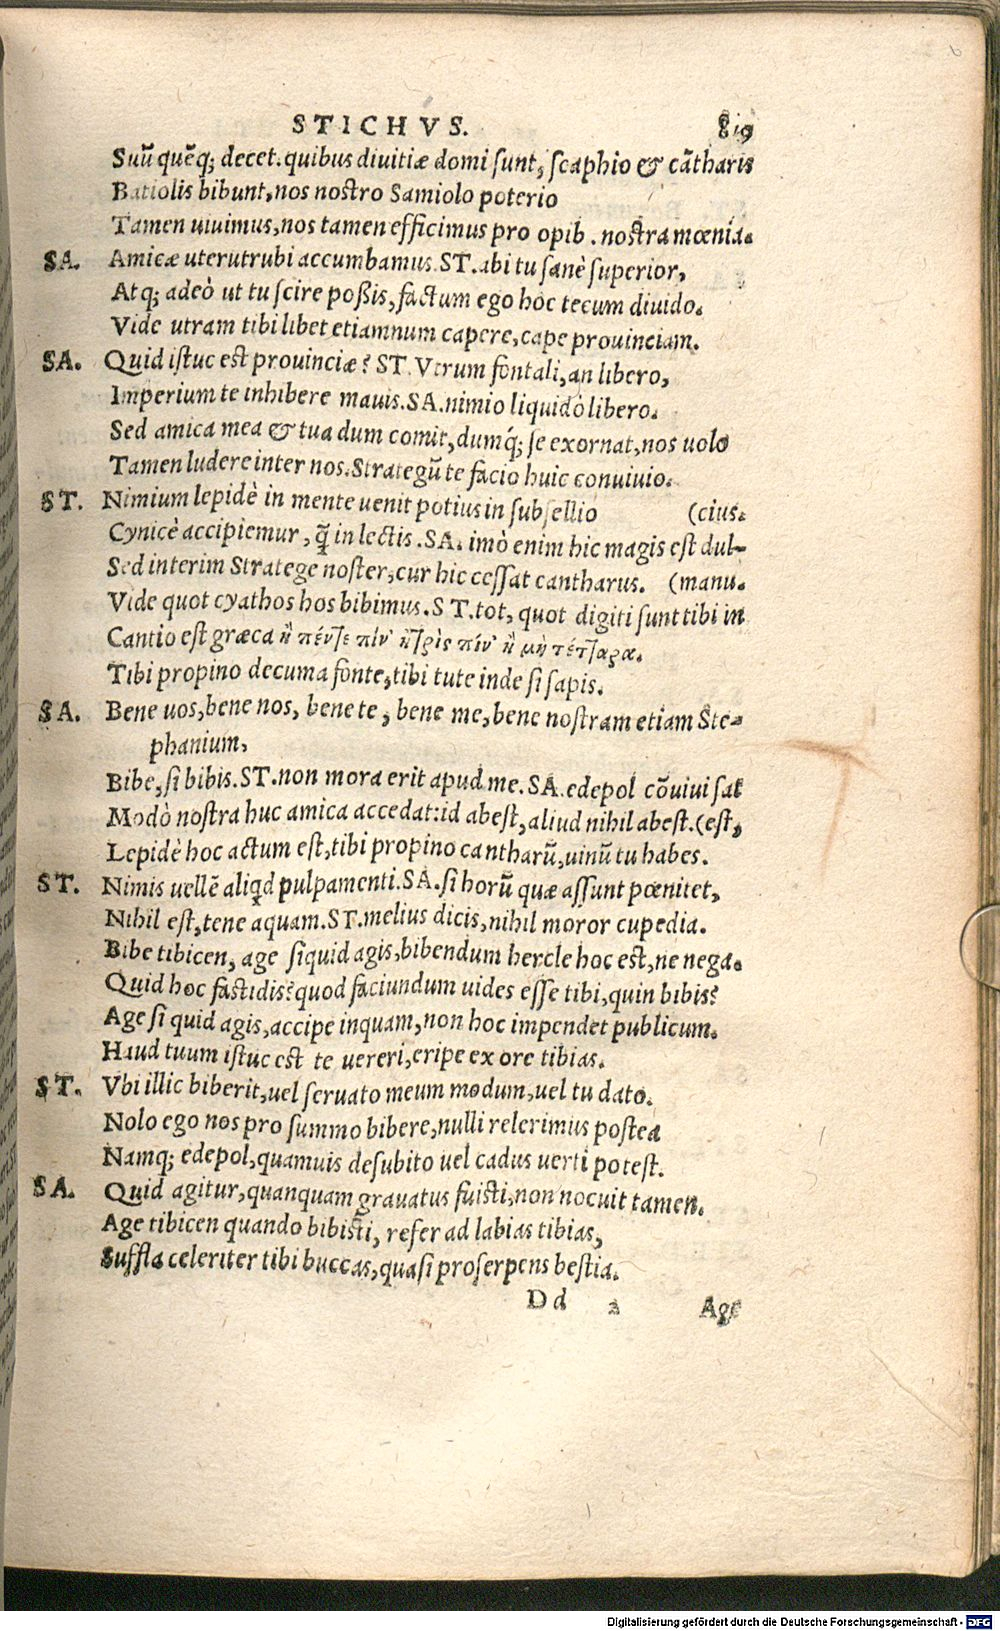 STICHVS. 819
Suũ quẽq; decet. quibus divitiæ domi sunt, scaphio & cãtharis
Batiolis bibunt, nos nostro Samiolo poterio
Tamen uiuimus, nos tamen efficimus pro opib. nostra mœnia.
SA. Amicæ uter utrubi accumbamus. ST. abi tu sanè superior,
Atq; adeò ut tu scire poßis, factum ego hoc tecum diuido.
Vide utram tibi libet etiamnum capere, cape prouinciam.
SA. Quid istuc est prouinciæ? ST. Vtrum fontali, an libero,
Imperium te inhibere mauis. SA. nimio liquidò libero.
Sed amica mea & tua dum comit, dumq́; se exornat, nos uolo
Tamen ludere inter nos. Strategũ te facio huic conuiuio.
ST. Nimium lepidè in mente uenit potius in subsellio (cius.
Cynicè accipiemur, q̃ in lectis. SA. imò enim hic magis est dul-
Sed interim Stratege noster, cur hic cessat cantharus. (manu.
Vide quot cyathos hos bibimus. ST. tot, quot digiti sunt tibi in
Cantio est græca ἢ πέντε πίν' ἢ τρὶς πίν' ἢ μὴ τέτταρα.
Tibi propino decuma fonte, tibi tute inde si sapis.
SA. Bene uos, bene nos, bene te, bene me, bene nostram etiam Ste-
phanium,
Bibe, si bibis. ST. non mora erit apud me. SA. edepol cõuiui sat
Modò nostra huc amica accedat: id abest, aliud nihil abest. (est,
Lepidè hoc actum est, tibi propino cantharũ, uinũ tu habes.
ST. Nimis uellẽ aliqd pulpamenti. SA. si horũ quæ assunt pœnitet,
Nihil est, tene aquam. ST. melius dicis, nihil moror cupedia.
Bibe tibicen, age siquid agis, bibendum hercle hoc est, ne nega.
Quid hoc fastidis? quod faciundum uides esse tibi, quin bibis?
Age si quid agis, accipe inquam, non hoc impendet publicum.
Haud tuum istuc est te uereri, eripe ex ore tibias.
ST. Vbi illic biberit, uel seruato meum modum, uel tu dato.
Nolo ego nos pro summo bibere, nulli relerimus postea
Namq; edepol, quamuis desubito uel cadus uerti potest.
SA. Quid agitur, quanquam grauatus fuisti, non nocuit tamen.
Age tibicen quando bibisti, refer ad labias tibias,
Suffla celeriter tibi buccas, quasi proserpens bestia.
Dd 2 Age
Digitalisierung gefördert durch die Deutsche Forschungsgemeinschaft - DFG